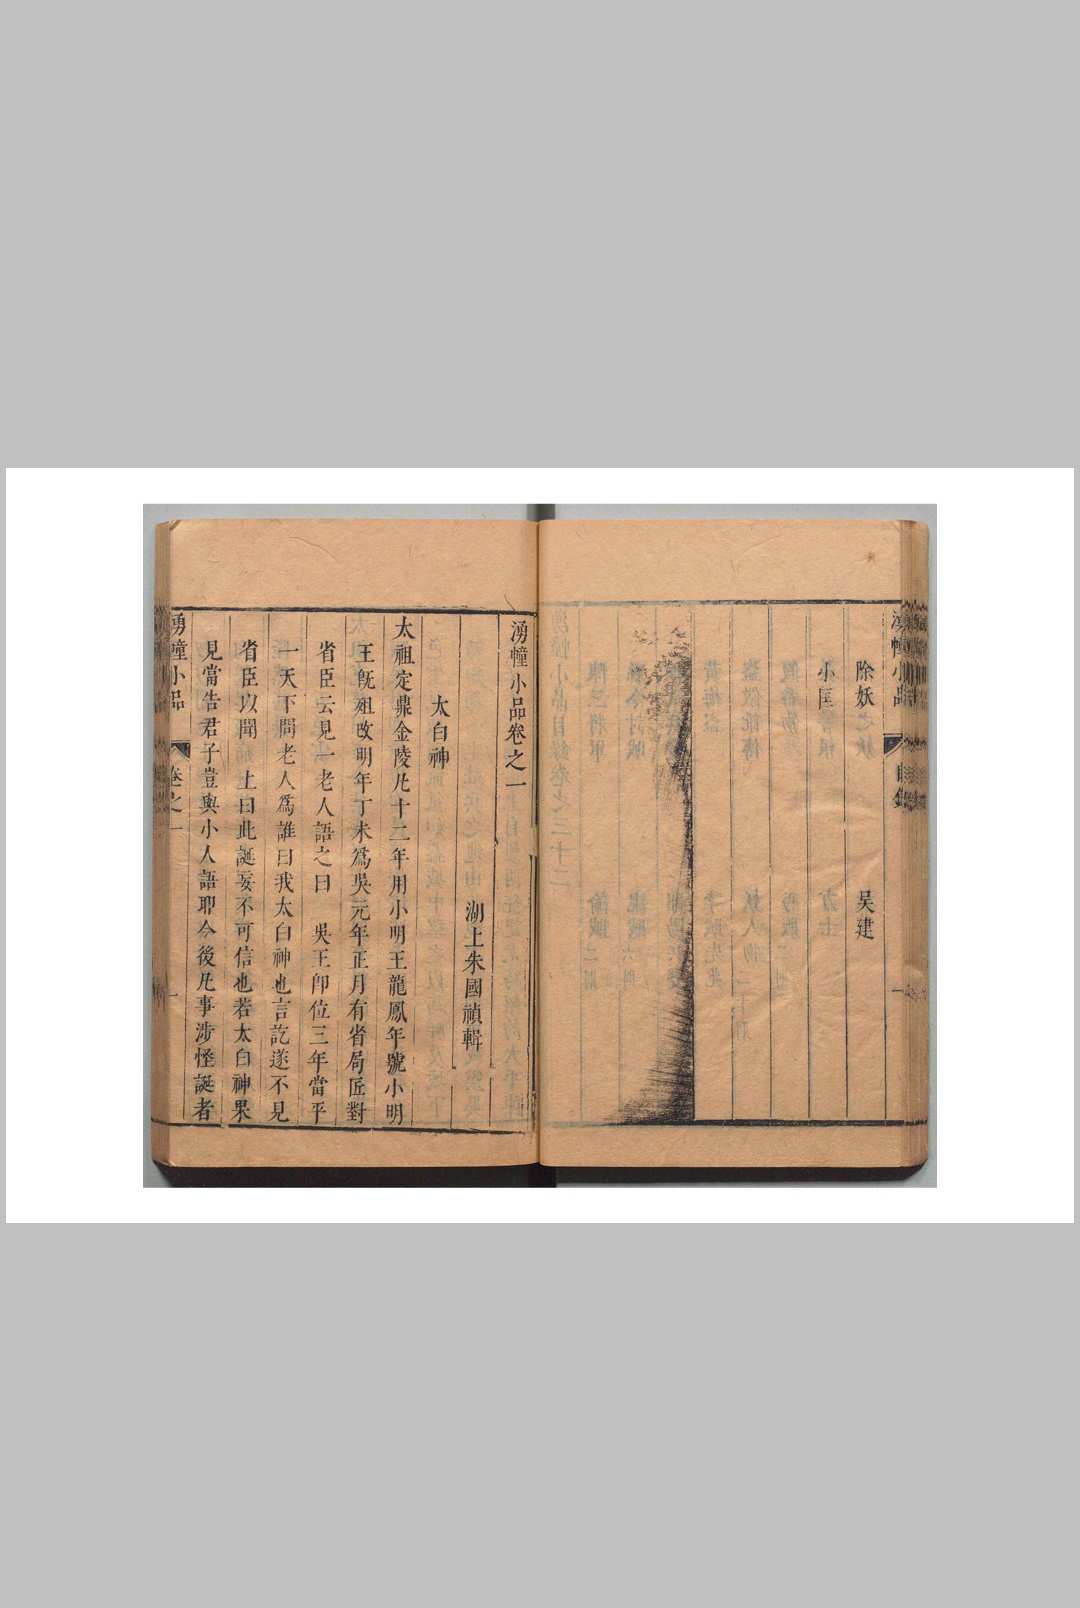 湧幢小品
目錄
除妖
吳建
小匡
湧幢小品卷之一
湖上朱國禎輯
太白神
太祖定鼎金陵凡十二年用小明王龍鳳年號小明
王旣殂改明年丁未爲吳元年正月有省局匠對
省臣云見一老人語之曰 吳王卽位三年當平
一天下問老人爲誰曰我太白神也言訖遂不見
省臣以聞 上曰此誕妄不可信也若太白神果
見當告君子豈與小人語耶今後凡事涉怪誕者
湧幢小品
卷之一
一